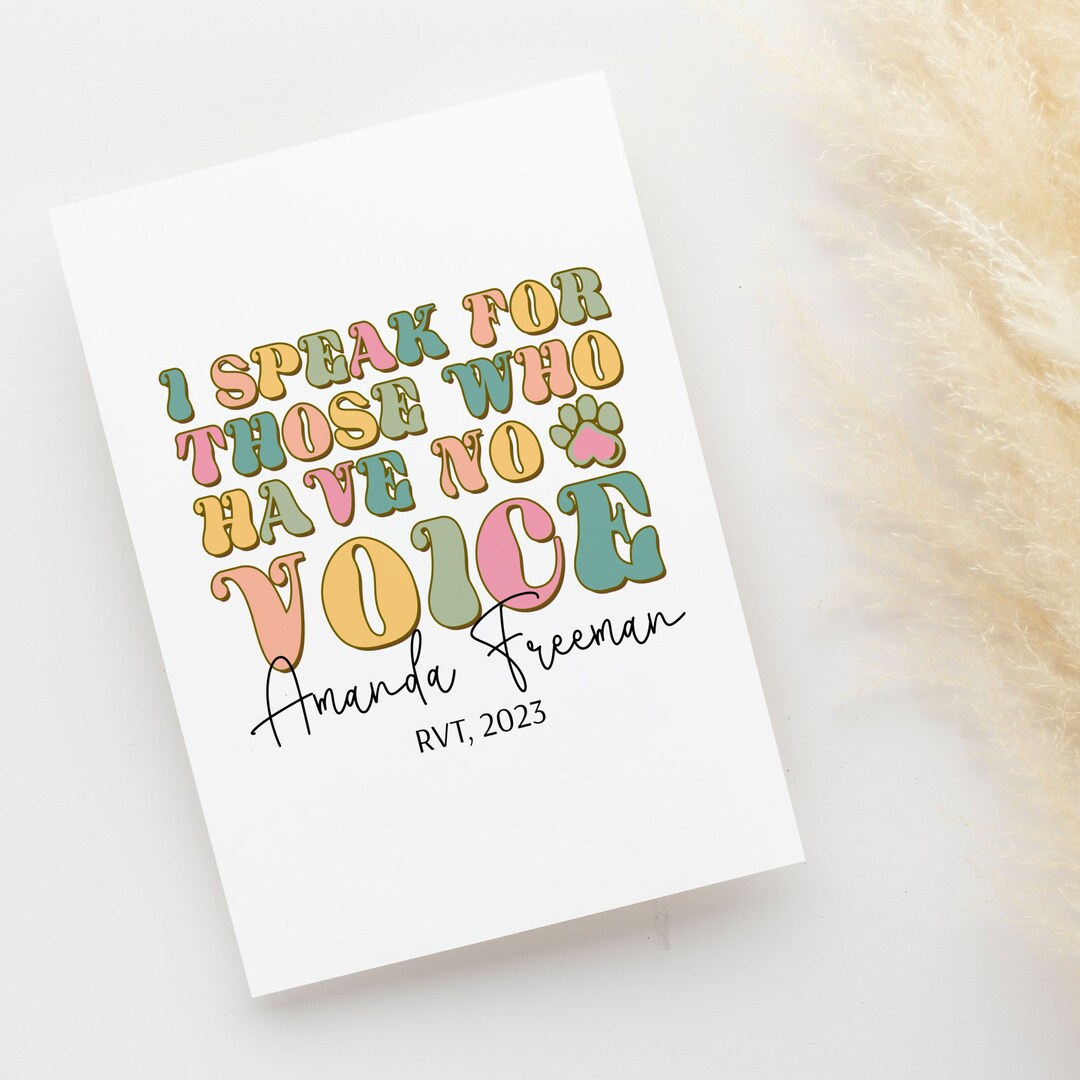 I SPEAK FOR
THOSE WHO
HAVE NO
VOICE
Amanda Freeman
RVT, 2023